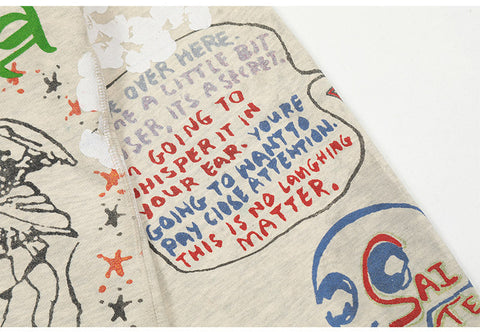 E OVER HERE
ME A LITTLE BIT
SER. IT'S A SECRET.
M GOING TO
WHISPER IT IN
YOUR EAR. YOU'RE
GOING TO WANT TO
PAY CLOSE ATTENTION.
THIS IS NO LAUGHING
MATTER.
SAI
TE